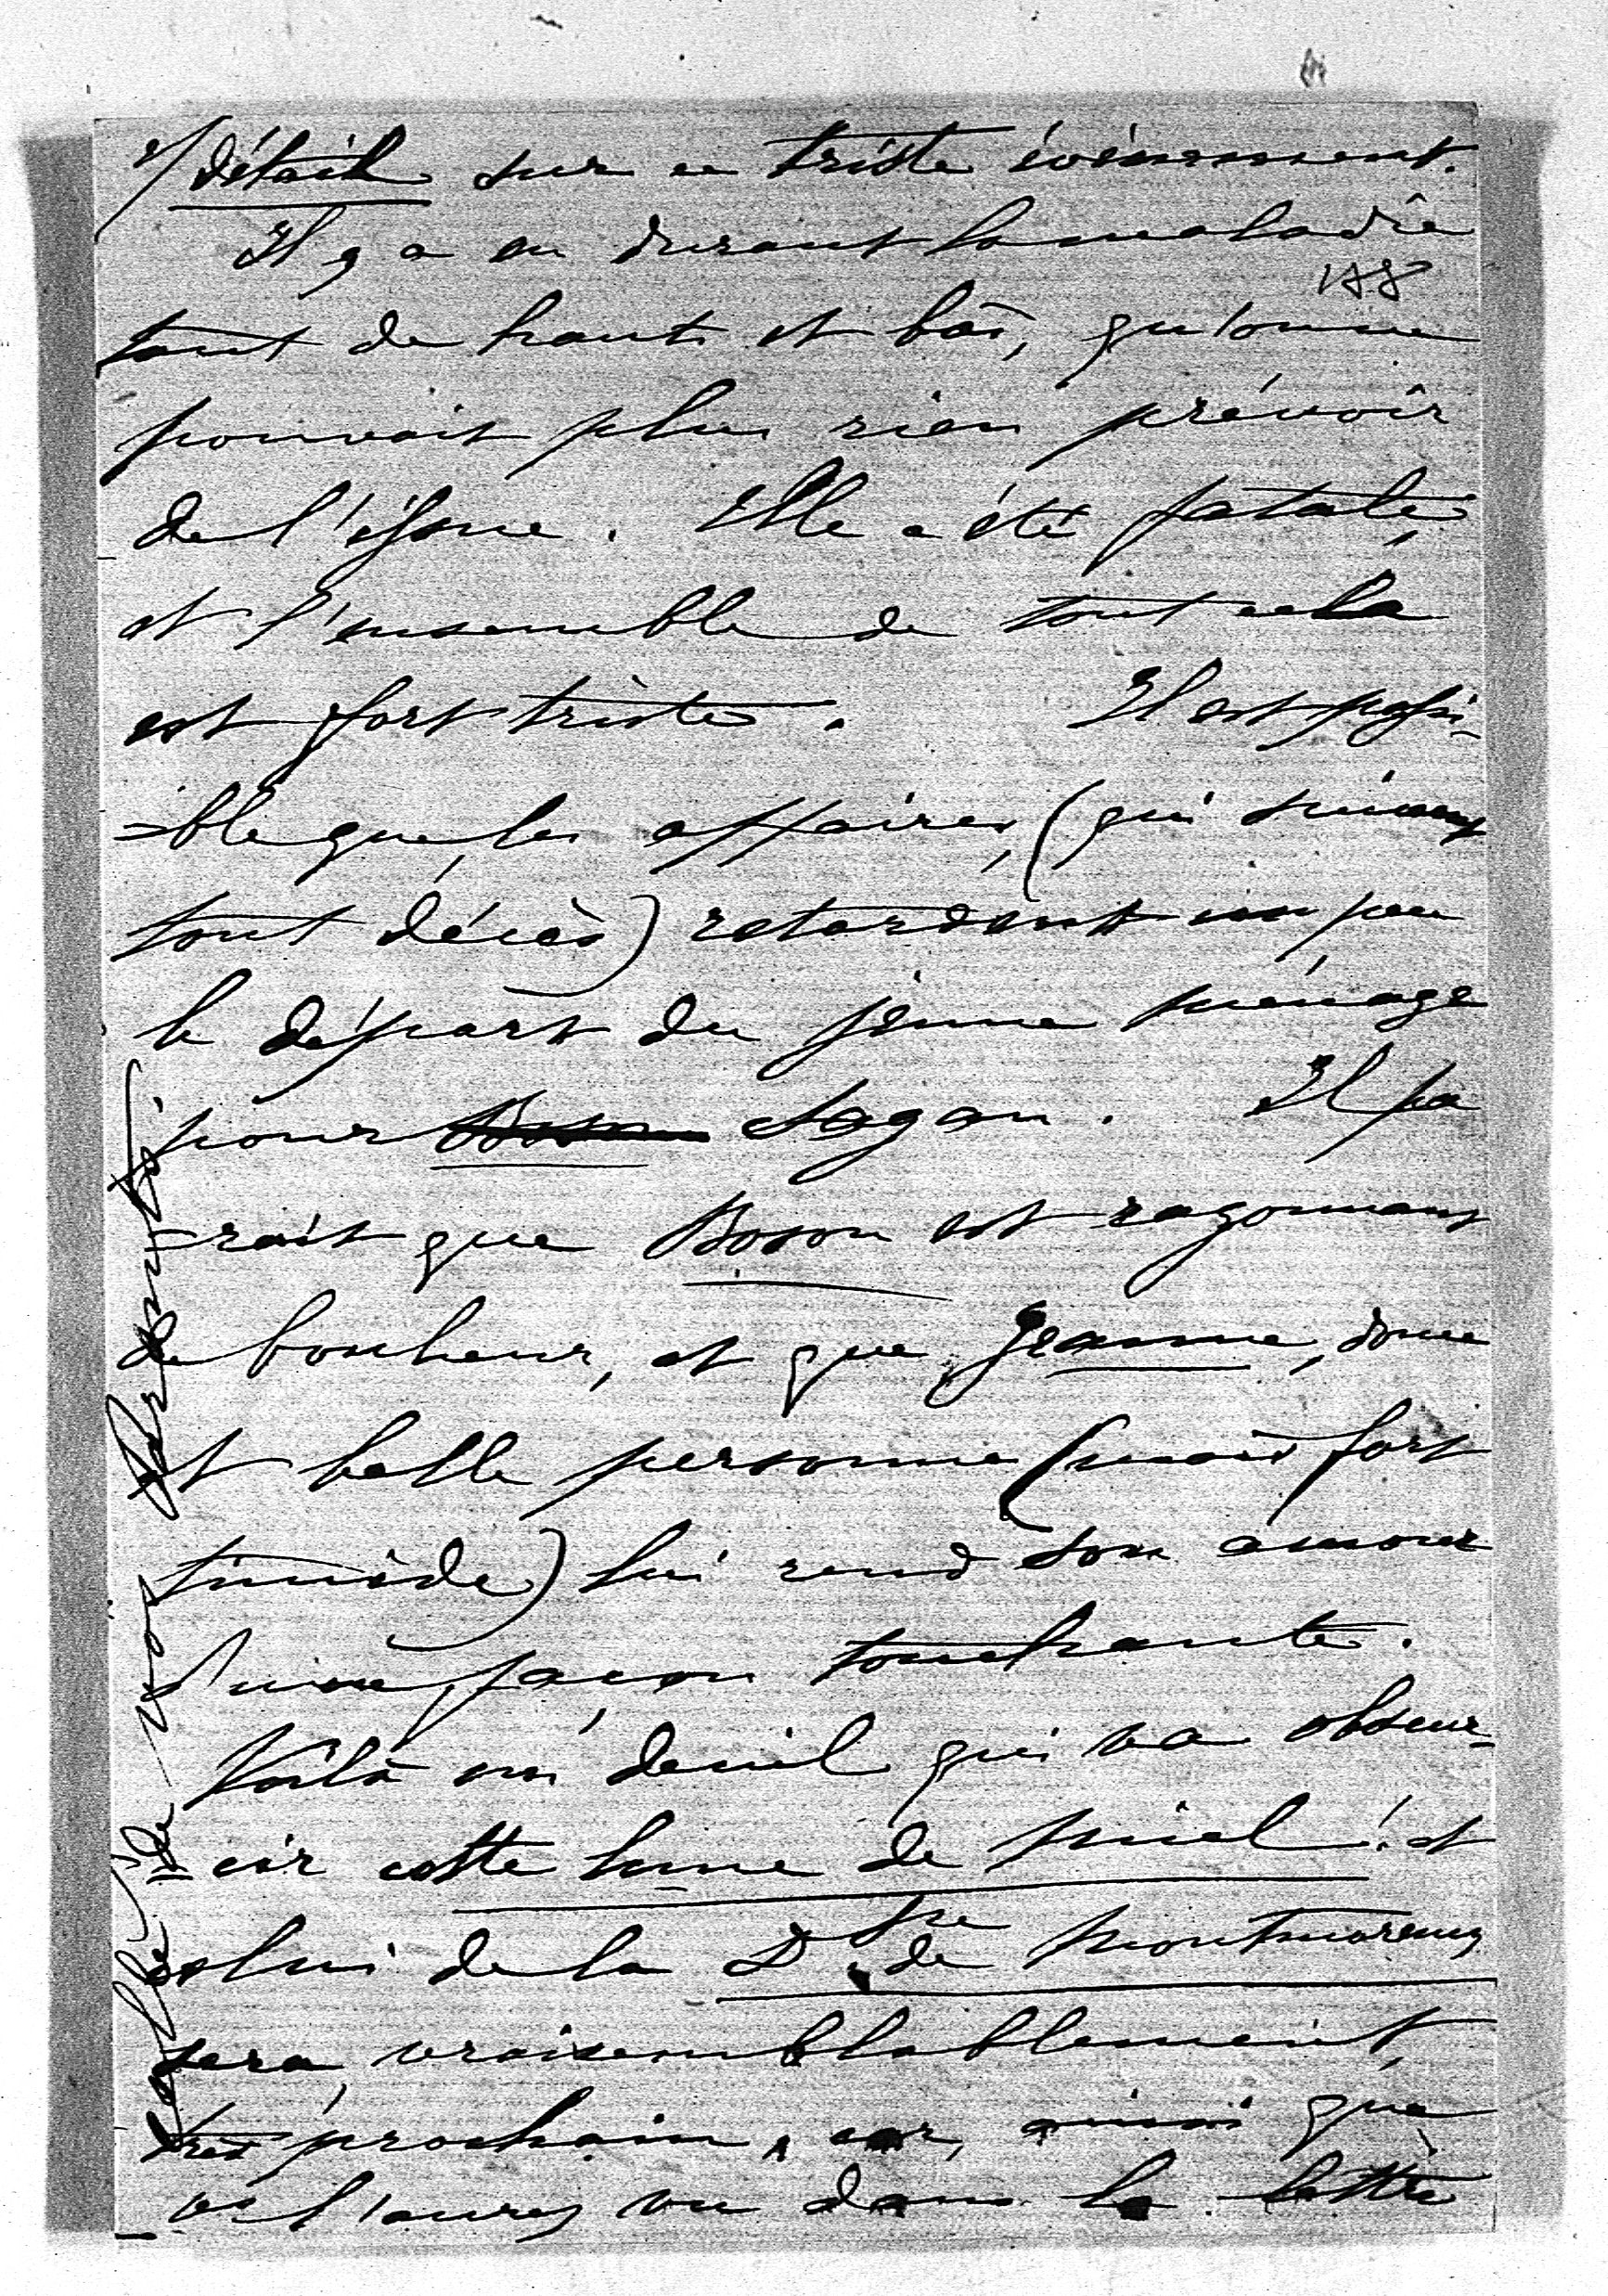 2/ détails sur ce triste évènement.
Il y a eu durant la maladie
188
tant de hauts et bas, qu'on ne
pouvait plus rien prévoir
de l'issue. Elle a été fatale,
et l'ensemble de tout cela
est fort triste. Il est possi-
-ble que les affaires, (qui suivent
tout décès) retardent un peu
le départ du jeune ménage
pour Sagan. Il pa
-rait que Boson est rayonnant
de bonheur, et que Jeanne, douce
et belle personne (mais fort
timide) lui rend son amour
d'une façon touchante.
Voilà un deuil qui va obscur-
=cir cette lune de miel! et
celui de la Dsse de Montmorency
sera, vraisemblablement,
très prochain, car, ainsi que
vs l'aurez vu dans la lettre
de vos Parents